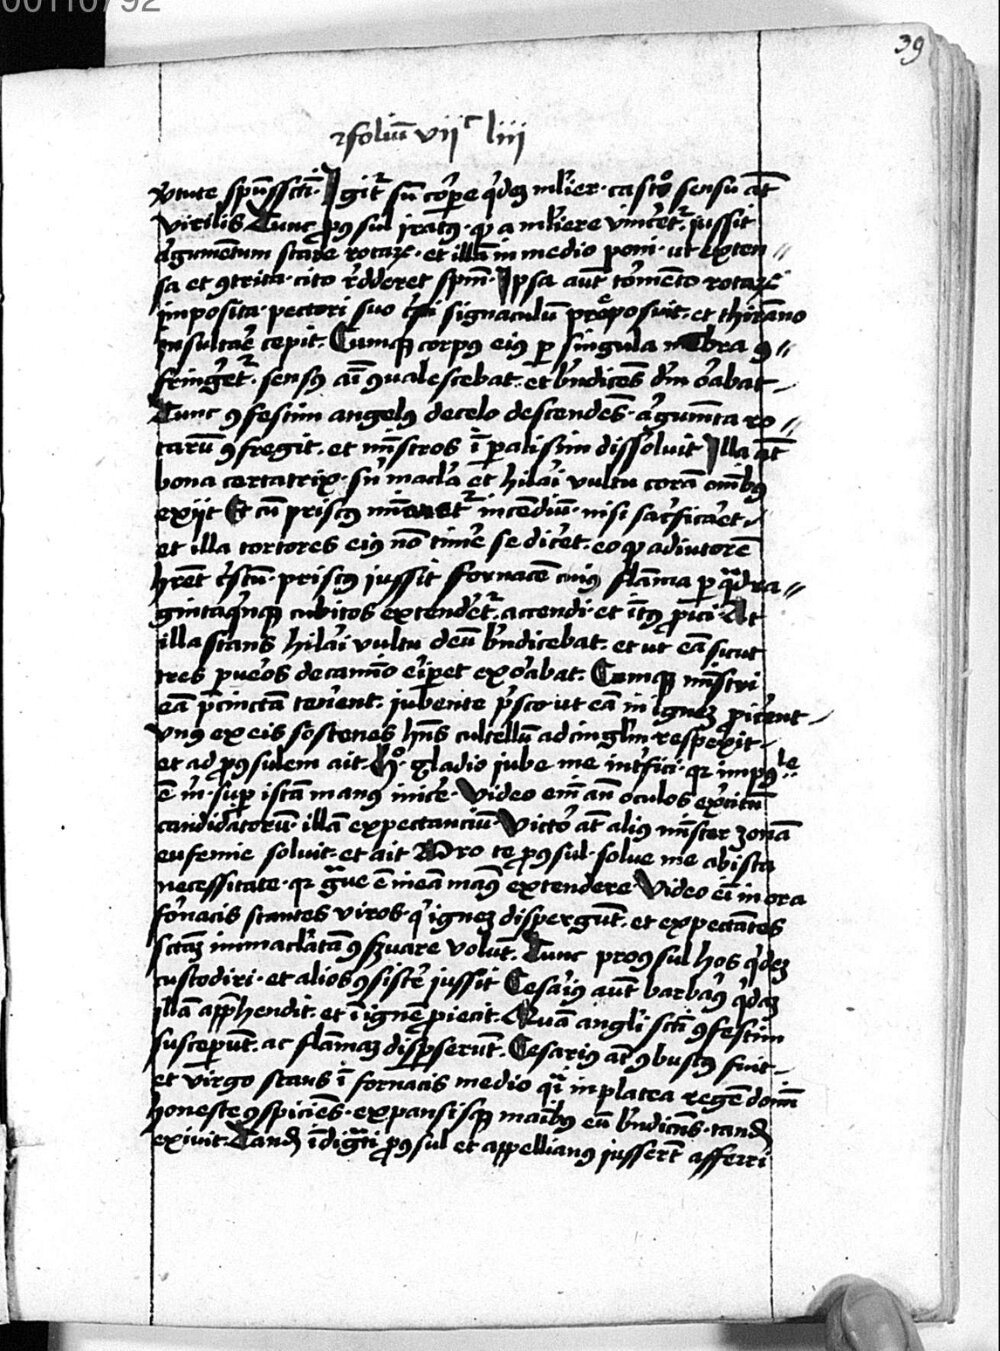 00110792
39
folium vijᶜ liij
v̾tute sp̄usscī · Igit̾ sū cor̾pe q̾dez ml̾ier · casto sensu āt
virilis Tunc ꝓ9sul irat9 · ꝙ a ml̾iere vince̾t̾ · jussit
argumentum stare rotaꝝ · et illā in medio poni · ut exten〃
sa et 9trita · cito r̾dderet spm̄ · Ipsa aūt tor̾mēto rotaꝝ
imposita · pectori suo signaculū p̾posuit · et thiranno
insulta̾e cepit · Cumqꝫ corpus ei9 ꝑ singula mēbra 9〃
fringe̾t̾ · sens9 aī 9ualescebat · et b̾ndicēs dm̄ or̾abat
Tunc 9festim angel9 de celo descendēs · argumēta ro〃
tarū 9fregit · et mīstros ī ꝑalisim dissoluit Illa āt
bona certatrix · sn̄ macl̾a et hila̾i vultu corā omīb9
exijt Et cū prisc9 incendiū · nisi sac̾fica̾et
et illa tortores ei9 nō time̾ se dice̾t · eo ꝙ adiutorē
hrēt · prisc9 jussit fornacē cui9 flāma ꝑ q̾dra〃
gintaq̾nqꝫ cubitos extende̾t̾ · accendi · et īt9 ꝓici · At
illa stans hila̾i vultu deū b̾ndicebat · et ut eā sicut
tres pue̾os de camīo eripe̾t exor̾abat · Cumqꝫ mīstri
eā p̾cinctā tene̾ent · jubente p̾sco ut eā in ignez ꝓice̾ent
vn9 ex eis sostenes hn̄s cultellū ad cinglm̄ respexit
et ad ꝓ9sulem ait · gladio jube me int̾fici · qr imp9le
ē m̾ · suꝑ istā man9 inice̾ · Video em̄ an̄ oculos exercitū
candidatorū · illā expectanciū · Victor āt ali9 mīster zonā
eufemie soluit · et ait Oro te ꝓ9sul · solue me ab ista
necessitate · qr graue ē in eā man9 extendere · Video eī in ora
for̾nacis stantes viros · q̾ ignez disperguīt · et expectātes
scāz immacl̾atā 9s̾uare volūt · Tunc pro9sul hos q̾dez
custodiri · et alios 9siste̾ jussit Cesari9 aūt barba̾9 q̾daz
illā app̾hendit · et ī ignē ꝓiecit · Quā angli̾ scī 9festim
susceperūt · ac flāmaz disꝑserūt · Cesari9 āt 9bust9 fuit
et virgo stans ī fornacis medio q̾i in platea regē domī
honeste 9spiciēs · expansisqꝫ maīb9 eū b̾ndicēs · tandē
exiuit · Tandē īdigāti ꝓ9sul et appellian9 jusserūt afferri